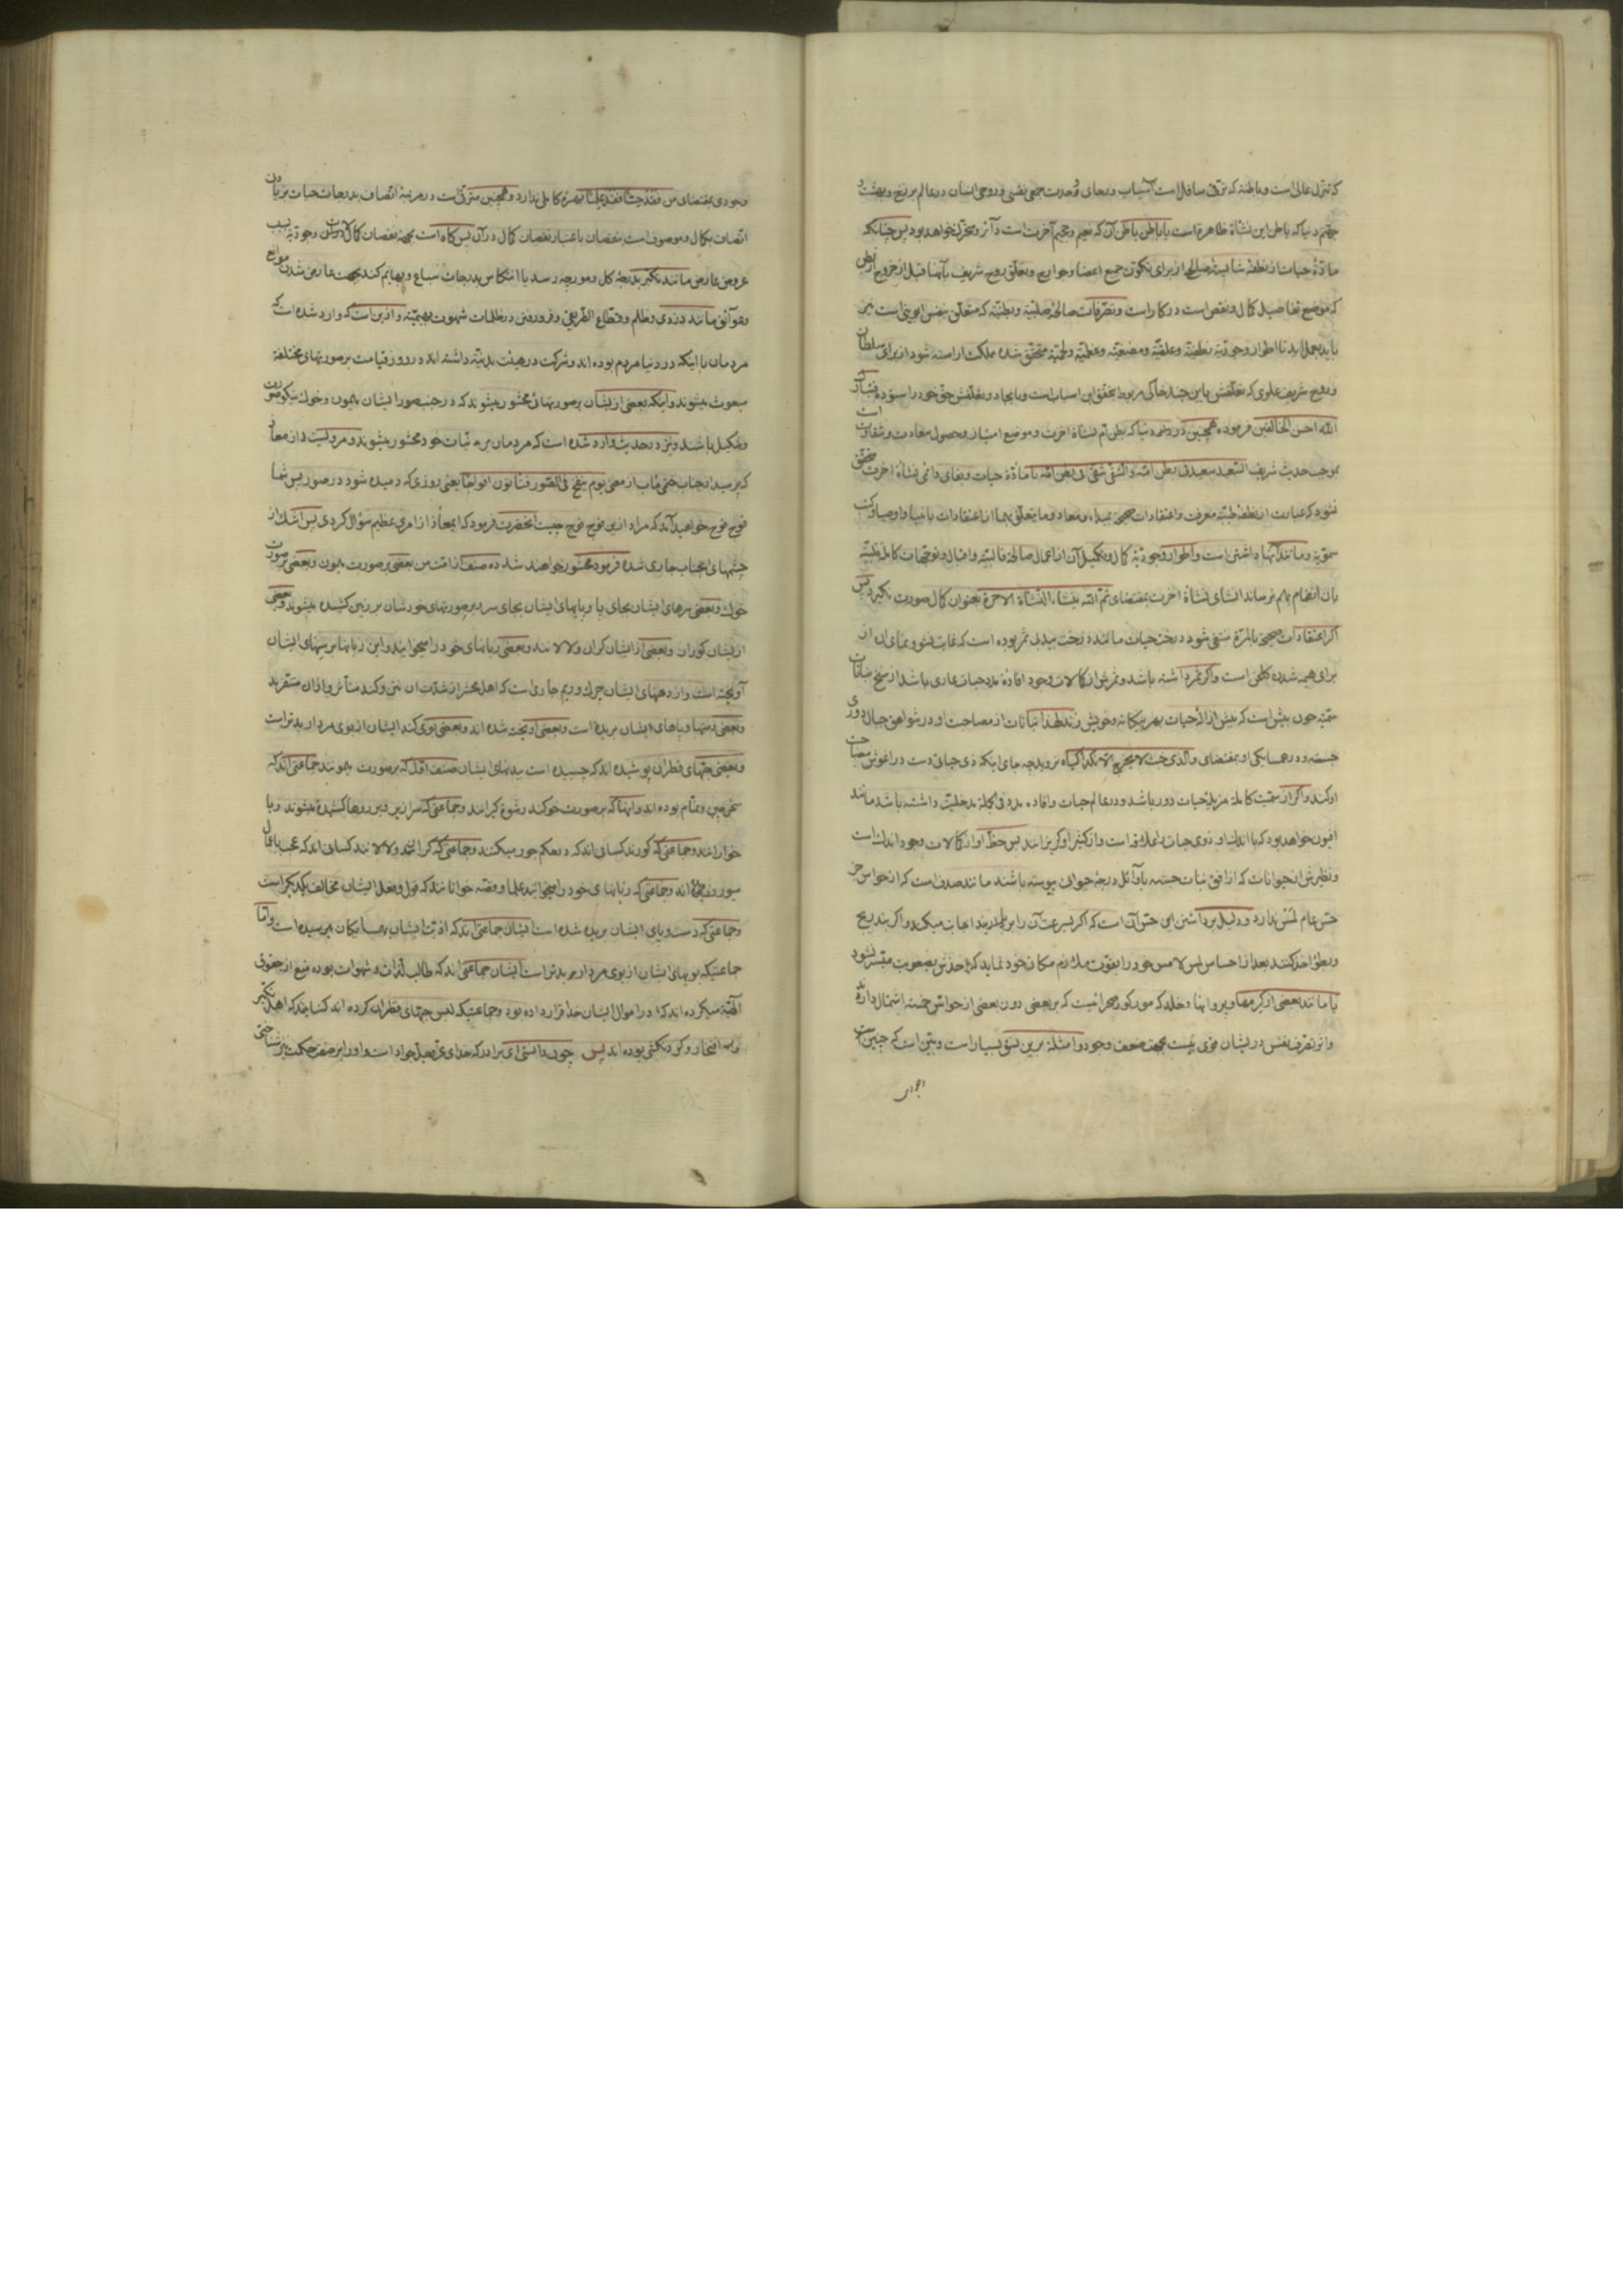 که تنزل عالی است و باطنه که ترقی سافل است آسیاب و رحای وحدت جمعی نفسی و روحی انسان در عالم برزخ و بهشت و
جهنم دنیا که باطن این نشأه ظاهره است یا باطن باطن آن که نعیم و جحیم آخرت است دائر و متحرک خواهد بود پس چنانکه
مادّهٔ حیات از نطفهٔ صالحه از برای تکوّن جمیع اعضا و جوارح و تعلّق روح شریف بآنها قبل از خروج از بطن
که موضع تفاصیل کمال و نقص است در کار است و تصرّفات صالحهٔ صلبیّه و بطنیّه که متعلّق بنفس ابوینی است نیز
باید بعمل آید تا اطوار وجودیّهٔ نطفیّه و علقیّه و مضغیّه و عظمیّه و لحمیّه متحقق شده مملکت آراسته شود از برای سلطان
و روح شریف علوی که تعلّقش باین جسد خاکی مربوط بتحقق این اسباب است و بایجاد و تعلّقش حق خود را ستوده فتبارک
الله احسن الخالقین فرموده همچنین در رحم دنیا که بطن ام نشأة اخرت و موضع امتیاز و حصول سعادت و شقاوت است
بموجب حدیث شریف السّعید سعید فی بطن امّه و الشّقی شقی فی بطن امّه تا مادّهٔ حیات و بقای دائمی نشأهٔ اخرت متحقق
نشود که عبارت از نطفهٔ طیّبهٔ معرفت و اعتقادات صحیحه بمبداء و معاد و ما یتعلّق بهما از اعتقادات بانبیا و اوصیا و کتب
سمویّه و مانند آنها داشتن است و اطوار وجودیّهٔ کمال و تکمیل آن از اعمال صالحهٔ قالبیّه و اقبال و توجّهات کاملهٔ قلبیّه
بان انضمام بهم نرساند انشای نشأة اخرت بمقتضای ثمّ الله ینشاء النشأة الاخرة بعنوان کمال صورت نگیرد پس
اگر اعتقادات صحیحه بالمرّه منتفی شود درخت حیات مانند درخت بید بی ثمر بوده است که غایت نشو و نمای آن از
برای هیمه شدن گلخن است و اگر ثمر داشته باشد و ثمرش از کمالات وجود افادهٔ مدد حیات عاری باشد از سنخ نباتات
سمّیّه چون بیش است که بیش از ذی حیات بهر بیگانه و خویش زند لهذا نباتات از مصاحبت او در شواهق جبال دوری
جسته و در همسایگی او بمقتضای والذی خبث لا یخرج الا نکدا گیاه نروید چه جای اینکه ذی حیاتی دست در اغوش مصاحبت
او کند و اگر از سمّیّت کامله مزیل حیات دور باشد و در عالم حیات و افاده مدد فی الجمله مدخلیّت داشته باشد مانند
افیون خواهد بود که با اندک او ذوی حیات را علاقه است و از کثیر او گریزانند پس حظّ او از کمالات وجود اندک است
و نظیرش از حیوانات که از افق نبات جسته باوّل درجهٔ حیوان پیوسته باشند مانند صدف است که از حواس جز
حسّ عام لمس ندارد و دلیل بر داشتن این حس آن است که اگر بسرعت آن را بردارند اجابت میکند و اگر بتدریج
و بطؤ اخذ کنند بعد از احساس لمس لامس خود را بقوّت ملازم مکان خود نماید که اخذش بصعوبت میسّر نشود
یا مانند بعضی از کرمها و پروانها و خلد که مور کور صحرائیست که بر بعضی دون بعضی از حواس خمسه اشتمال دارند
و اثر تصرف نفس در ایشان قوی نیست بجهت ضعف وجود و امثلهٔ برین نسق بسیار است و بیّن است که چنین
وجودی
وجودی بمقتضای من فقد حسّا فقد علما بهرهٔ کاملی ندارد و همچنین مترقی است در مرتبهٔ اتصاف بدرجات حیات بزیادتی
اتصاف بکمال و موصوف است بنقصان باعتبار نقصان کمال در آن پس گاه است بجهة نقصان کمالات وجودیّه بسبب
عروض عارض مانند تکبر بدرجهٔ کلب و مورچه رسد یا انتکاس بدرجات سباع و بهایم کند بجهت عارض شدن موانع
و عوائق مانند دزدی و ظلم و قطّاع الطّریقی و فرو رفتن در ظلمات شهوت بهیمیّه و ازین است که وارد شده است که
مردمان با اینکه در دنیا مردم بوده اند و شرکت در هیئت بدنیّه داشته اند در روز قیامت بر صورتهای مختلفه
مبعوث میشوند و اینکه بعضی از ایشان بر صورتهائی محشور میشوند که در جنب صور ایشان میمون و خوک نیکو صورت
و شکیل باشند و نیز در حدیث وارد شده است که مردمان بر نیّات خود محشور میشوند و مرویست از معاذ
که پرسید از جناب ختمی مآب از معنی یوم ینفخ فی الصّور فتأتون افواجا یعنی روزی که دمیده شود در صور پس شما
فوج فوج خواهید آمد که مراد ازین فوج فوج چیست آنحضرت فرمود که ای معاذ از امری عظیم سؤال کردی پس اشک از
چشمهای آنجناب جاری شده فرمود محشور خواهند شد ده صنف از امّت من بعضی بر صورت میمون و بعضی بر صورت
خوک و بعضی سرهای ایشان بجای پا و پایهای ایشان بجای سر و بر صورتهای خودشان بر زمین کشیده میشوند و بعضی
از ایشان کوران و بعضی از ایشان کران و لالانند و بعضی زبانهای خود را میخوایند و این زبانها بر سینهای ایشان
آویخته است و از دهنهای ایشان چرک و ریم جاری است که اهل محشر از شدّت آن نتن و گند متأثر و از آن متنفرند
و بعضی دستها و پاهای ایشان بریده است و بعضی آویخته شده اند و بعضی بوی گند ایشان از بوی مردار بدتر است
و بعضی جبّهای قطران پوشیده اند که چسبیده است ببدنهای ایشان صنف اوّل که بر صورت میمونند جماعتی اند که
سخن چین و نمّام بوده اند و اینها که بر صورت خوکند رشوه گیرانند و جماعتی که سرازیر و بر روها کشیده میشوند ربا
خوارانند و جماعتی که کورند کسانی اند که در حکم جور میکنند و جماعتی که کرانند و لالانند کسانی اند که عجب باعمال
اند و جماعتی که زبانهای خود را میخوایند علما و قصّه خوانانند که قول و فعل ایشان مخالف یکدیگر است
و جماعتی که دست و پای ایشان بریده شده است ایشان جماعتی اند که اذیّت ایشان بهمسایگان میرسیده است و امّا
جماعتیکه بویهای ایشان از بوی مردار بدتر است ایشان جماعتی اند که طالب لذّات و شهوات بوده منع از حقوق
الهیّه میکرده اند که در اموال ایشان خدا قرار داده بود و جماعتیکه لبس جبّهای قطران کرده اند کسانی اند که اهل تکبّر
و افتخار و گردنکشی بوده اند پس چون دانستی ای برادر که خدای تعالی جواد است و او را بر صفت حکمت نیز شناختی